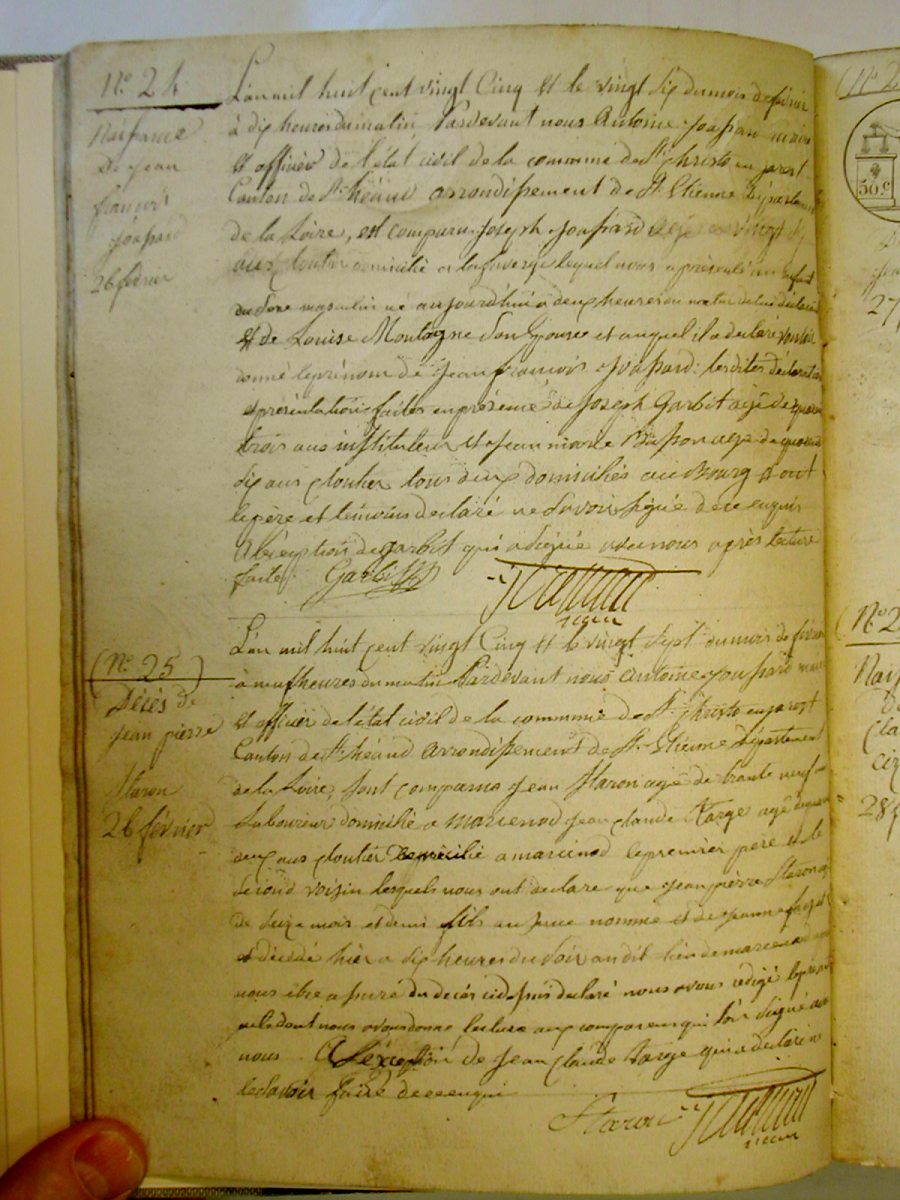 N.o 24
Naissance
De jean
françois
joassard
26 février
L'an mil huit cent vingt Cinq et le vingt six du mois de février
à dix heures du matin Pardevant nous Antoine joassard maire
et officier de l'état civil de la commune de St. christo en jarest
Canton de St. héand arrondissement de St. Etienne Département
de la Loire, est comparu joseph joassard agé de vingt
ans cloutier domicilié a lequel nous a présenté un enfant
du sexe masculin né aujourd'hui à deux heures du matin de lui déclarant
et de Louise Montagne son Epouse et auquel il a déclaré vouloir
donné le prénom de jean françois joassard: les dites déclaration
et présentation faites en présence de joseph Garbit agé de quarante
trois ans instituteur et jean marie Busson agé de quarante
six ans cloutier tous deux domiciliés au Bourg et ont
le père et témoins déclaré ne savoir signé de ce enquis
A l'exception de garbit qui a signé avec nous après lecture
faite. Garbit
(N.o 25)
Décès de
jean pierre
Staron
26 février
L'an mil huit cent vingt Cinq et le vingt sept du mois de février
à neuf heures du matin Pardevant nous antoine joassard maire
et officier de l'état civil de la commune de St. christo en jarest
Canton de St. héand arrondissement de St. Etienne Département
de la Loire, sont comparus jean Staron agé de trante neuf ans
Laboureur domicilié a marcenod jean claude Farge agé de
deux ans cloutier Domicilié a marcenod le premier père et le
second voisin lesquels nous ont declaré que jean pierre Staron agé
de seize mois et demi fils au sus nommé et de jeanne
et décédé hier a six heures du soir au dit lieu de marcenod
nous être assuré du décès cidessus declaré nous avous rédigé le présent
acte dont nous avous donné lecture aux comparens qui l'on signé avec
nous A l'exception de jean claude Farge qui a déclaré ne
le savoir faire de ce enquis
Staron
(N.o 2
Nais
27
28
50.c